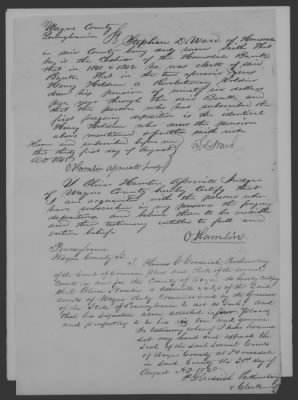 Wayne County
Pennsylvania Ss Stephen D. Ward of Honesdale
in said County being duly sworn saith that
he is the Cashier of the Honesdale Bank
that in 1841 & 1842 he was clerk of said
Bank. that in the two
Henry Holdem a Revolutionary Soldier
drew his pension of ninety six dollars
per year through the said Bank, and
that the person who has subscribed the
first foregoing deposition is the identical
Henry Holdem who drew the pension
above mentioned & further saith not
Sworn and subscribed before me
this thirty first day of August
AD 1848
S D Ward
O Hamlin Associate Judge
I Oliver Hamlin Associate Judge
of Wayne County hereby certify that
I am acquainted with the persons who
have subscribed in my presence the foregoing
depositions, and believe them to be
and their testimony entitled to full and
entire belief.
O Hamlin
Pennsylvania
Wayne County Ss
I, Prothonotary
of the Court of Common pleas and Clerk of the several
Courts in and for the County of Wayne do hereby certify
that Oliver Hamlin is associate Judge of the said
Courts of Wayne duly Commissioned by the Governor
of the State of Pennsylvania & act as such, and
that his signature above
and purporting to be his is true and genuine
In testimony whereof I have hereunto
set my hand and affixed the
Seal of the said several Courts
of Wayne County at Honesdale
in said County the 31st day of
August AD 1848
Prothonotary
& Clerk